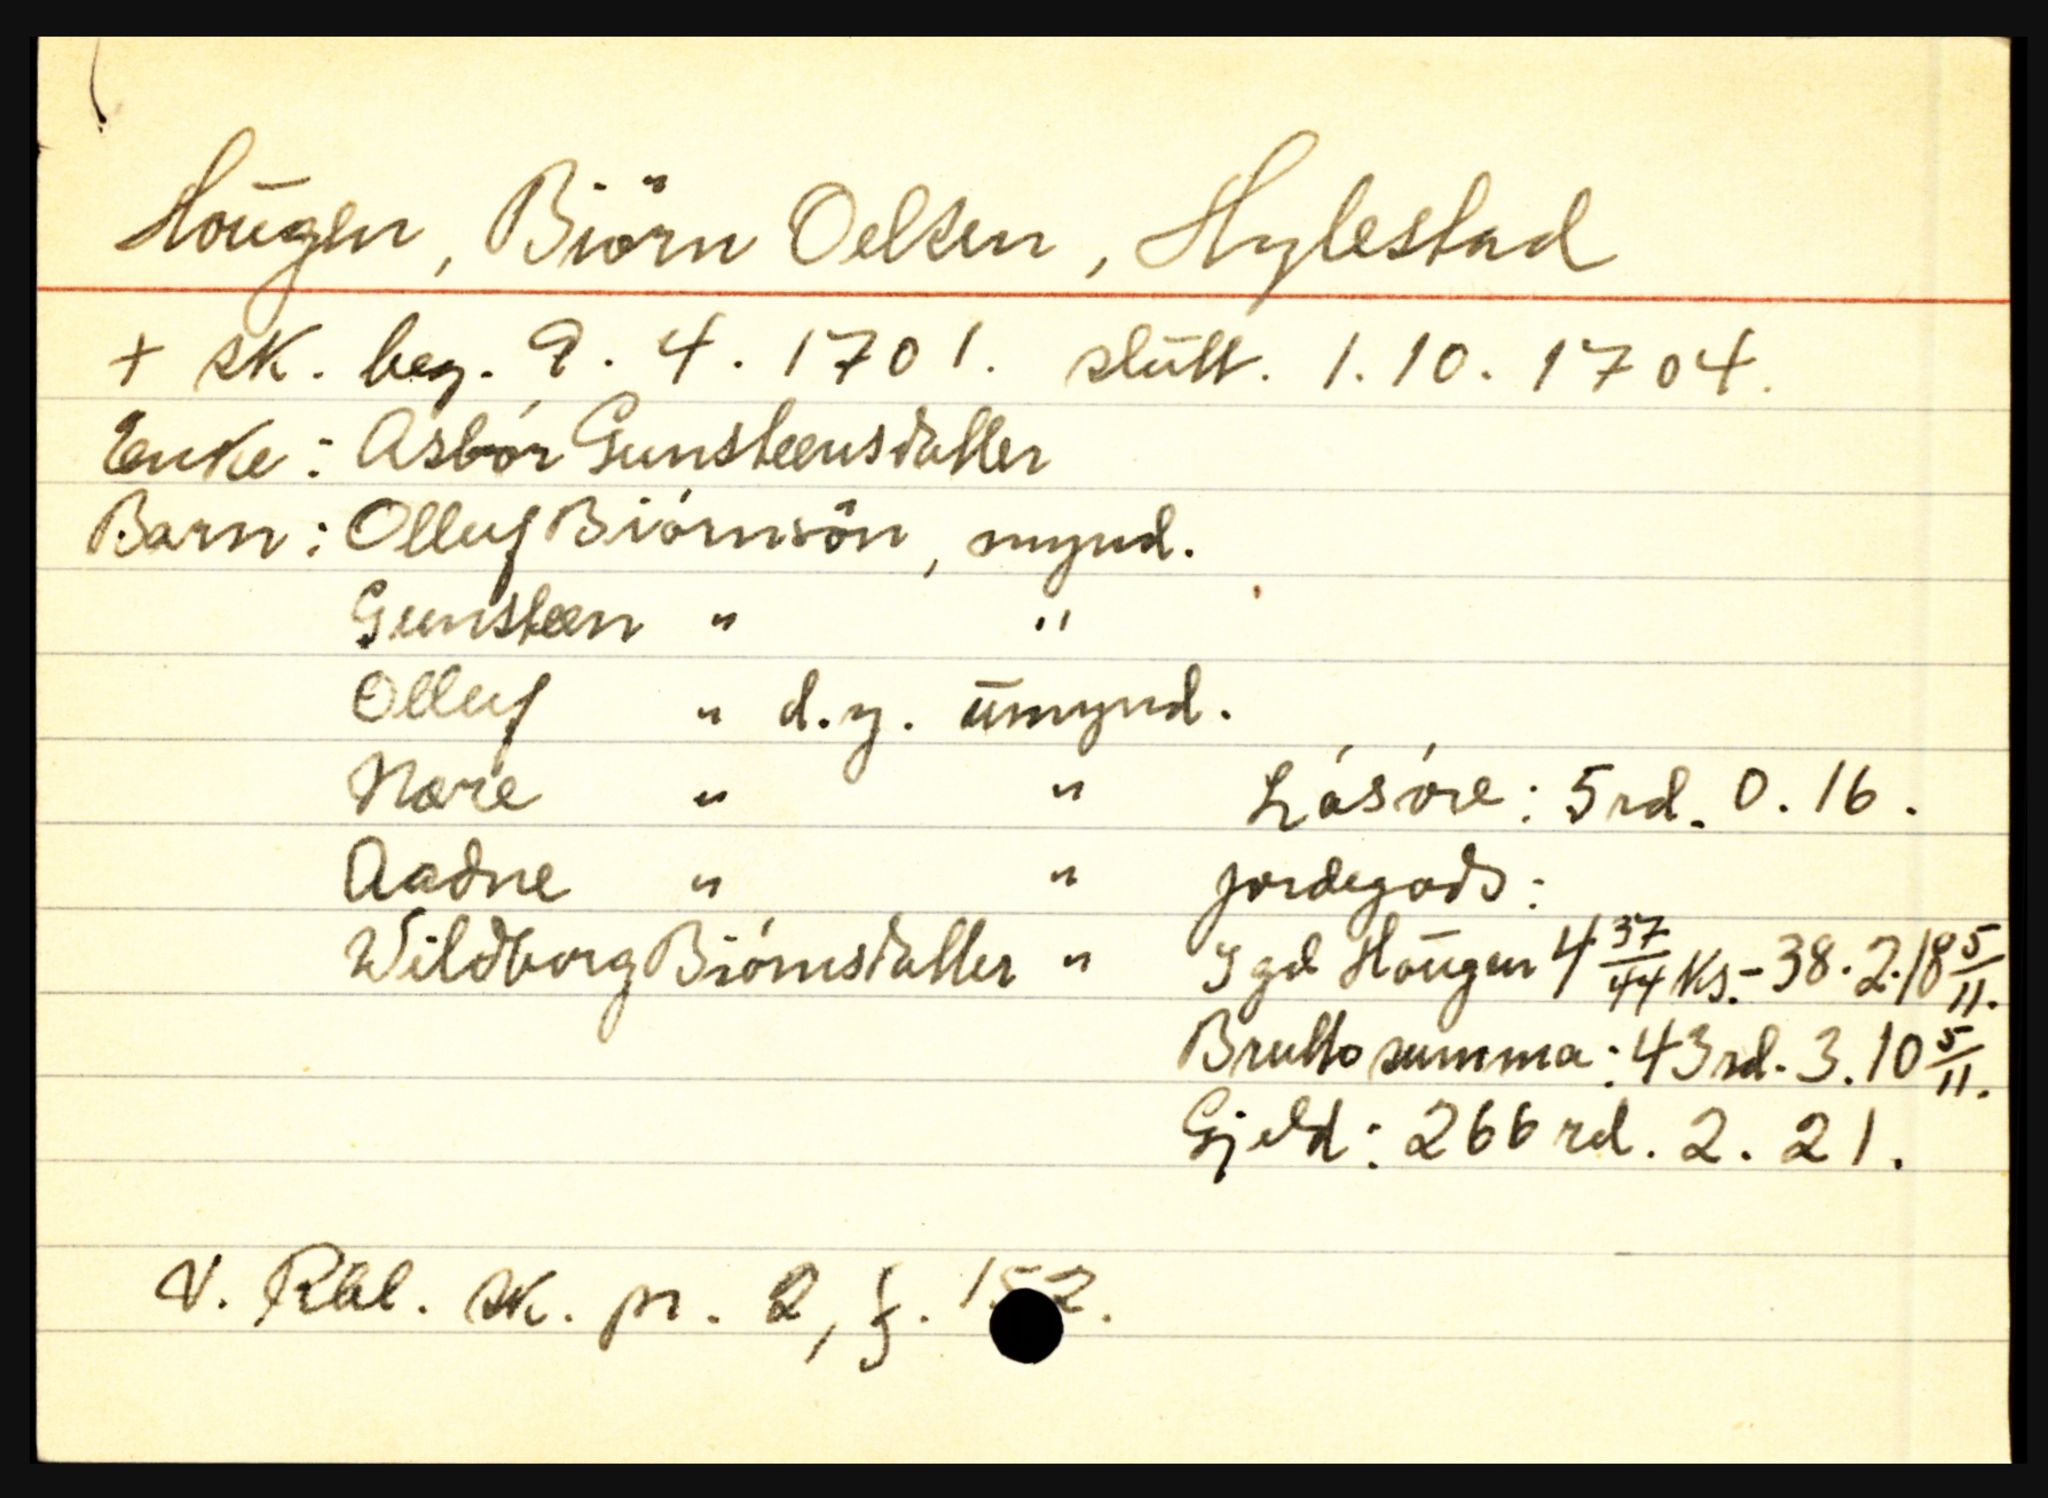 Hougen, Biörn Oelsen, Hylestad
+ sk. beg. 9. 4. 1701. slutt. 1. 10. 1704.
Enke: Asbór Gunsteensdatter
Barn: Olluf Biórnsön, mynd.
Gunsteen " "
Olluf " d.y. umynd.
Nore " " Lósóre: 5 rd. 0. 16.
Aadne " " jordegods:
Wildborg Biórnsdatter " I gd Hougen 4 37/44 Ks. - 38. 2. 18 5/11.
Brutto summa: 43 rd. 3. 10 5/11.
Gjeld: 266 rd. 2. 21.
V. Rbl. sk. pr. 2, f. 152.